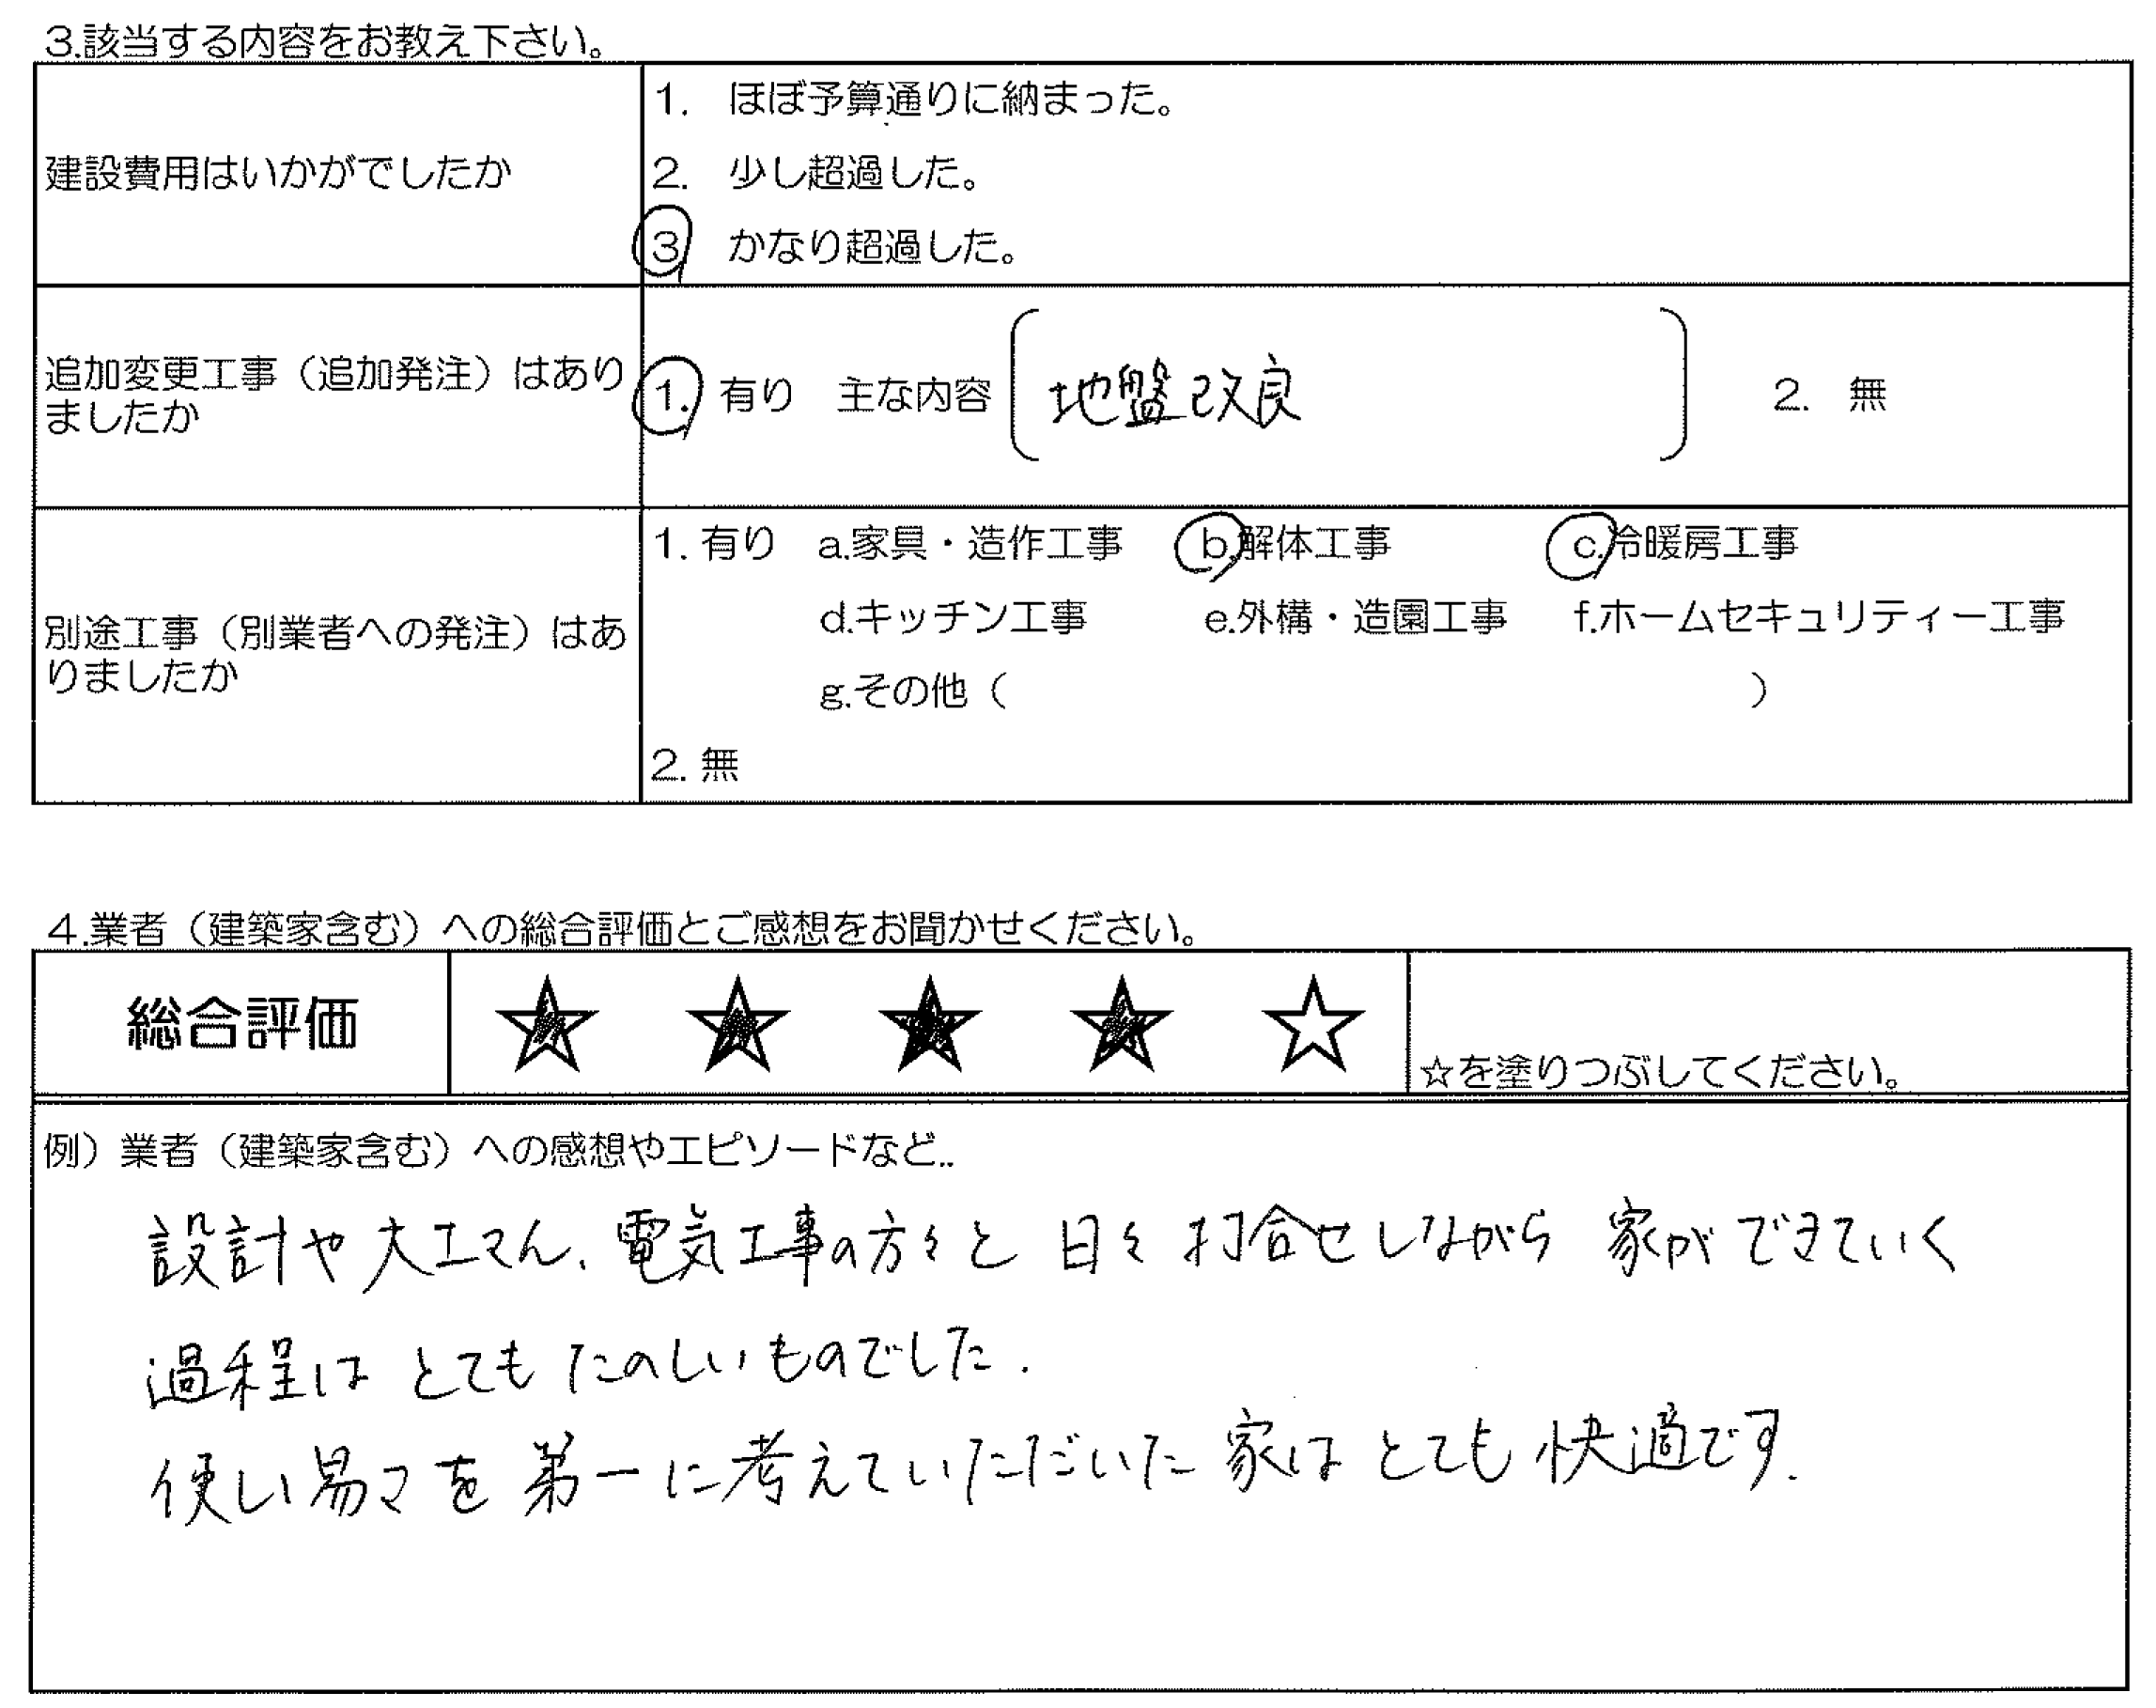 3.該当する内容をお教え下さい。
建設費用はいかがでしたか
1. ほぼ予算通りに納まった。
2. 少し超過した。
3 かなり超過した。
追加変更工事（追加発注）はあり
ましたか
1. 有り 主な内容 〔地盤改良〕 2. 無
別途工事（別業者への発注）はあ
りましたか
1. 有り a.家具・造作工事 b.解体工事 c.冷暖房工事
d.キッチン工事 e.外構・造園工事 f.ホームセキュリティー工事
g.その他（ ）
2. 無
4.業者（建築家含む）への総合評価とご感想をお聞かせください。
総合評価 ★ ★ ★ ★ ☆ ☆を塗りつぶしてください。
例）業者（建築家含む）への感想やエピソードなど..
設計や大工さん、電気工事の方々と 日々 打合せしながら 家ができていく
過程は とても たのしいものでした.
使い易さを 第一に考えていただいた 家は とても 快適です.